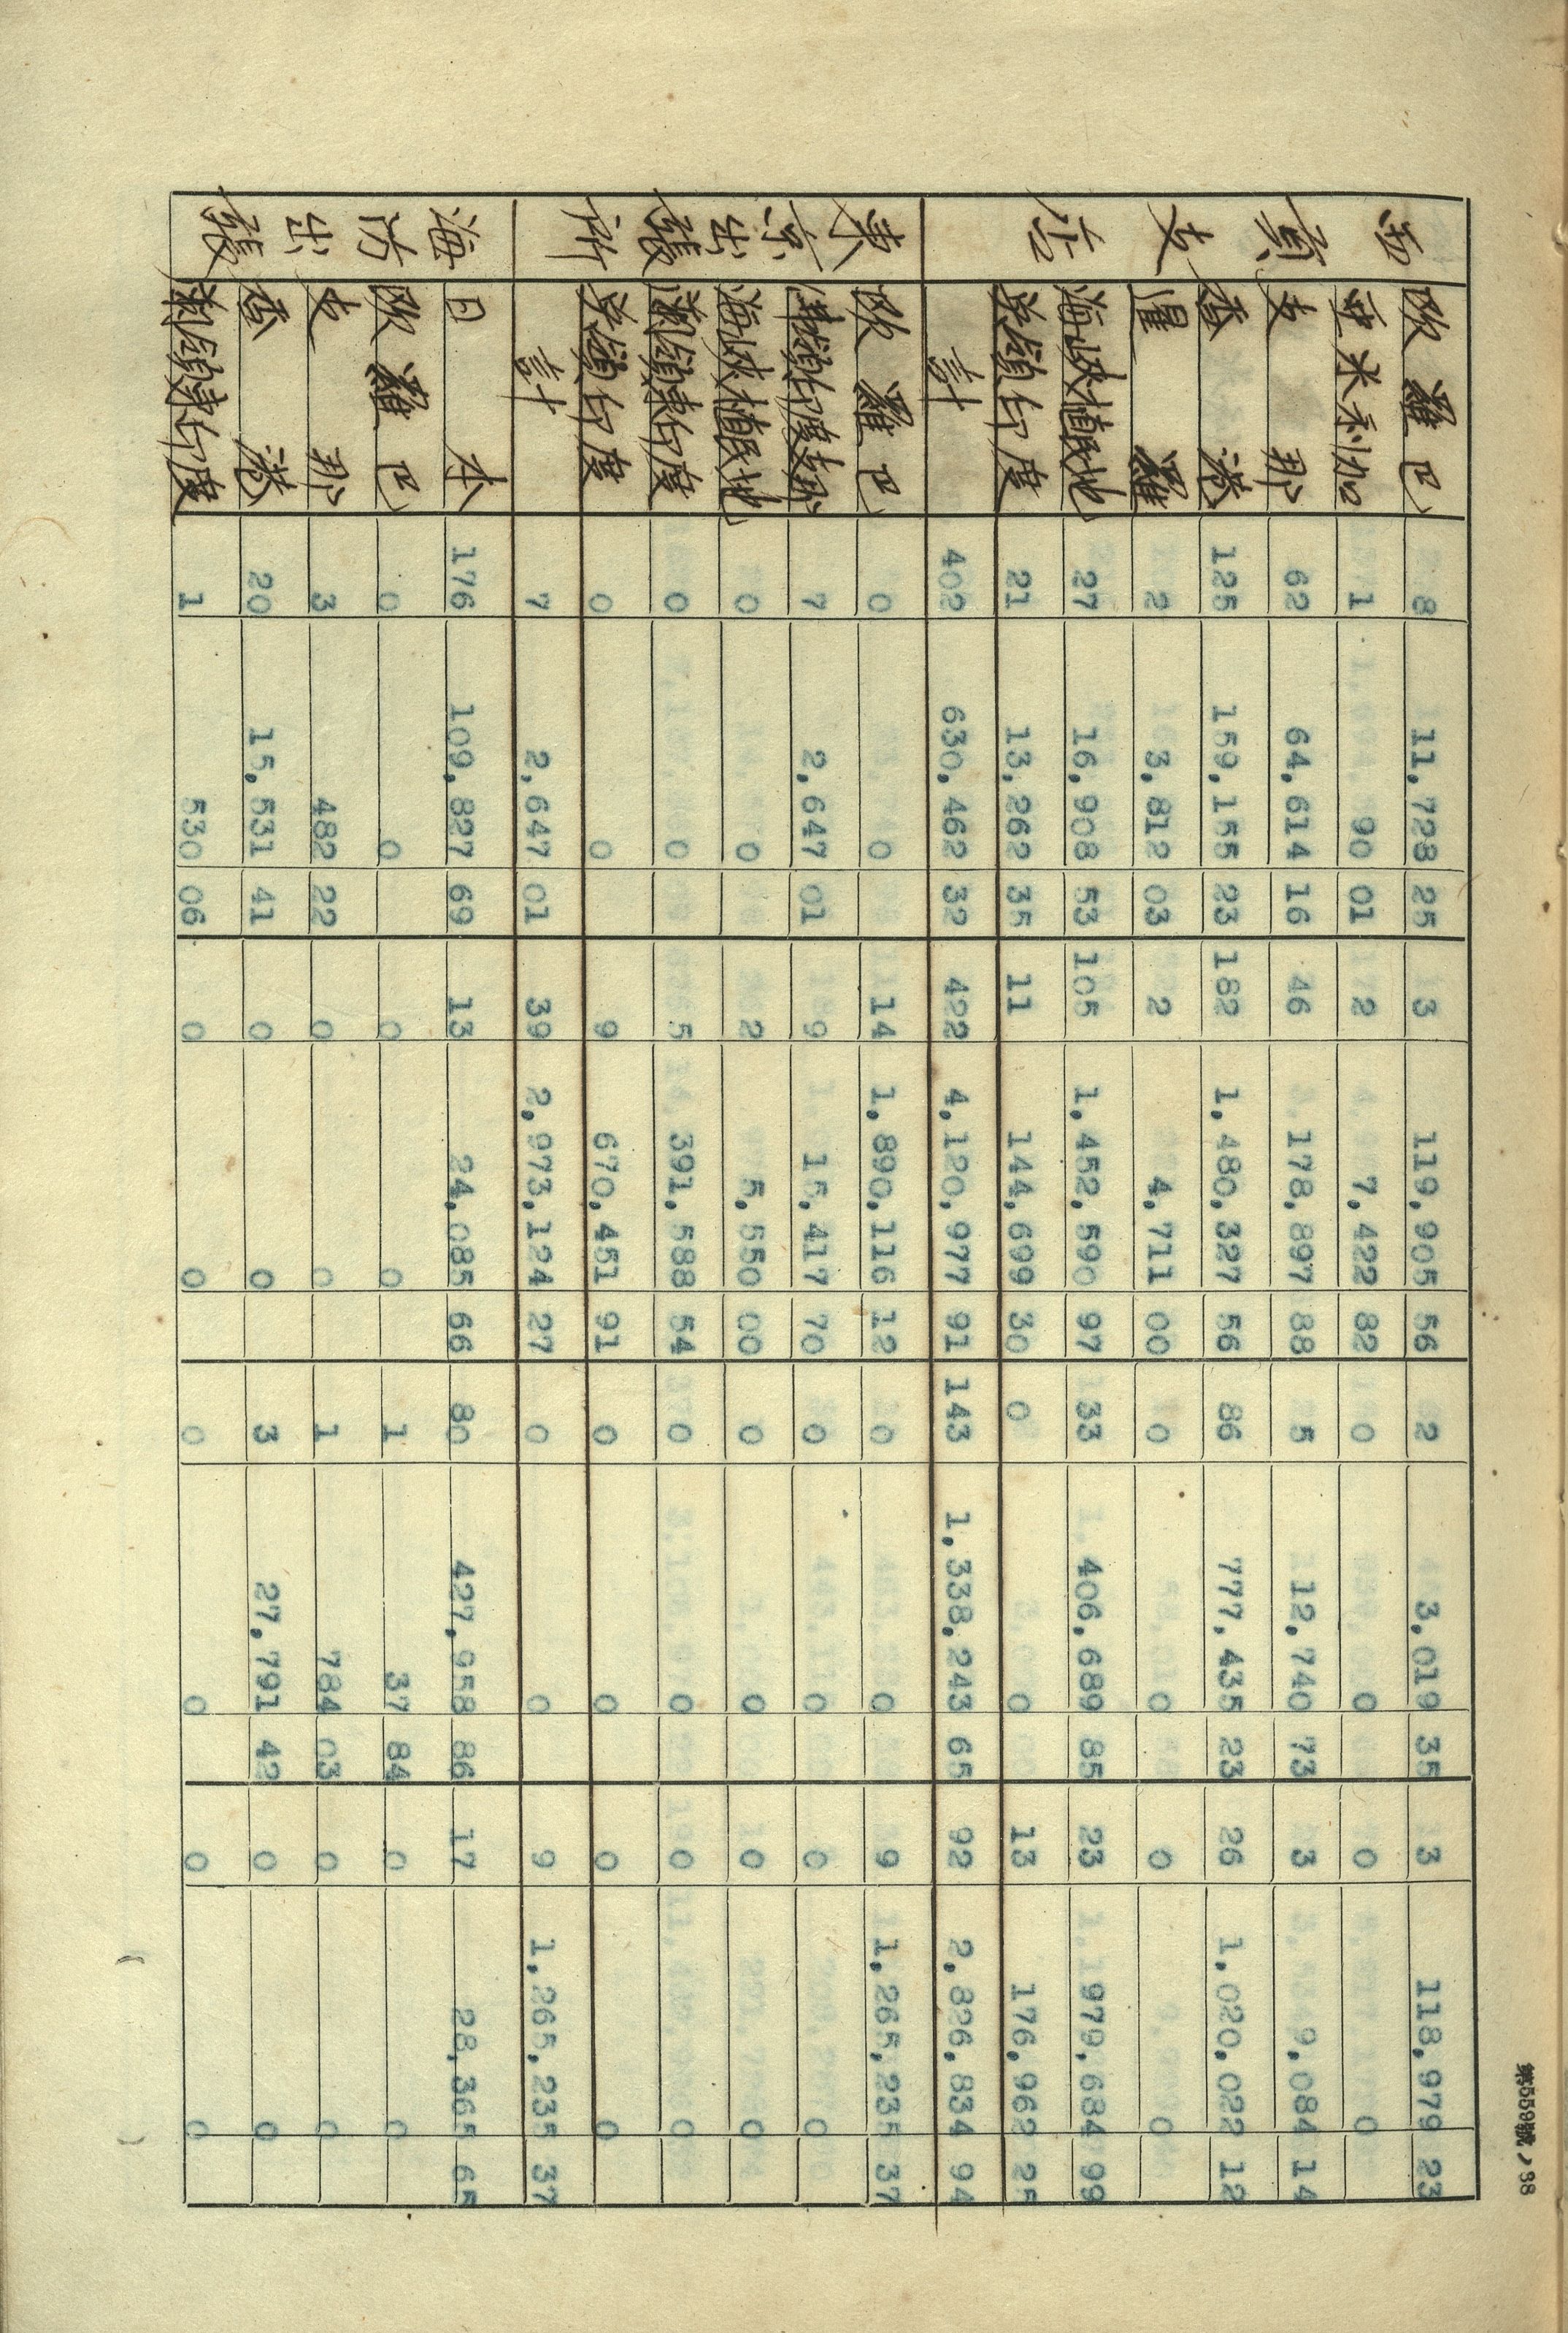 第559號ノ38
西貢支店
欧羅巴 8 11,728 25 3 119,905 56 2 3,019 35 3 118,979 23
亜米利加 1 90 01 2 7,422 82 0 0 0 0
支那 62 64,614 16 46 178,897 88 5 12,740 73 3 9,084 14
香港 125 159,155 23 182 1,480,327 56 86 777,435 23 26 1,020,022 12
暹羅 2 3,812 03 2 4,711 00 0 0 0 0
海峡植民地 27 16,908 53 105 1,452,590 97 33 406,689 85 23 979,684 99
英領印度 21 13,262 35 11 144,699 30 0 0 13 176,962 25
計 402 630,462 32 422 4,120,977 91 143 1,338,243 65 92 2,826,834 94
東京出張所
欧羅巴 0 0 14 1,890,116 12 0 0 9 1,265,235 37
佛領印度支那 7 2,647 01 9 15,417 70 0 0 0 0
海峡植民地 0 0 2 5,550 00 0 0 0 0
蘭領東印度 0 0 5 391,588 54 0 0 0 0
英領印度 0 0 9 670,451 91 0 0 0 0
計 7 2,647 01 39 2,973,124 27 0 0 9 1,265,235 37
海防出張
日本 176 109,827 69 13 24,085 66 80 427,958 86 17 28,365 65
欧羅巴 0 0 0 0 1 37 84 0 0
支那 3 482 22 0 0 1 784 03 0 0
香港 20 15,531 41 0 0 3 27,791 42 0 0
蘭領東印度 1 530 06 0 0 0 0 0 0